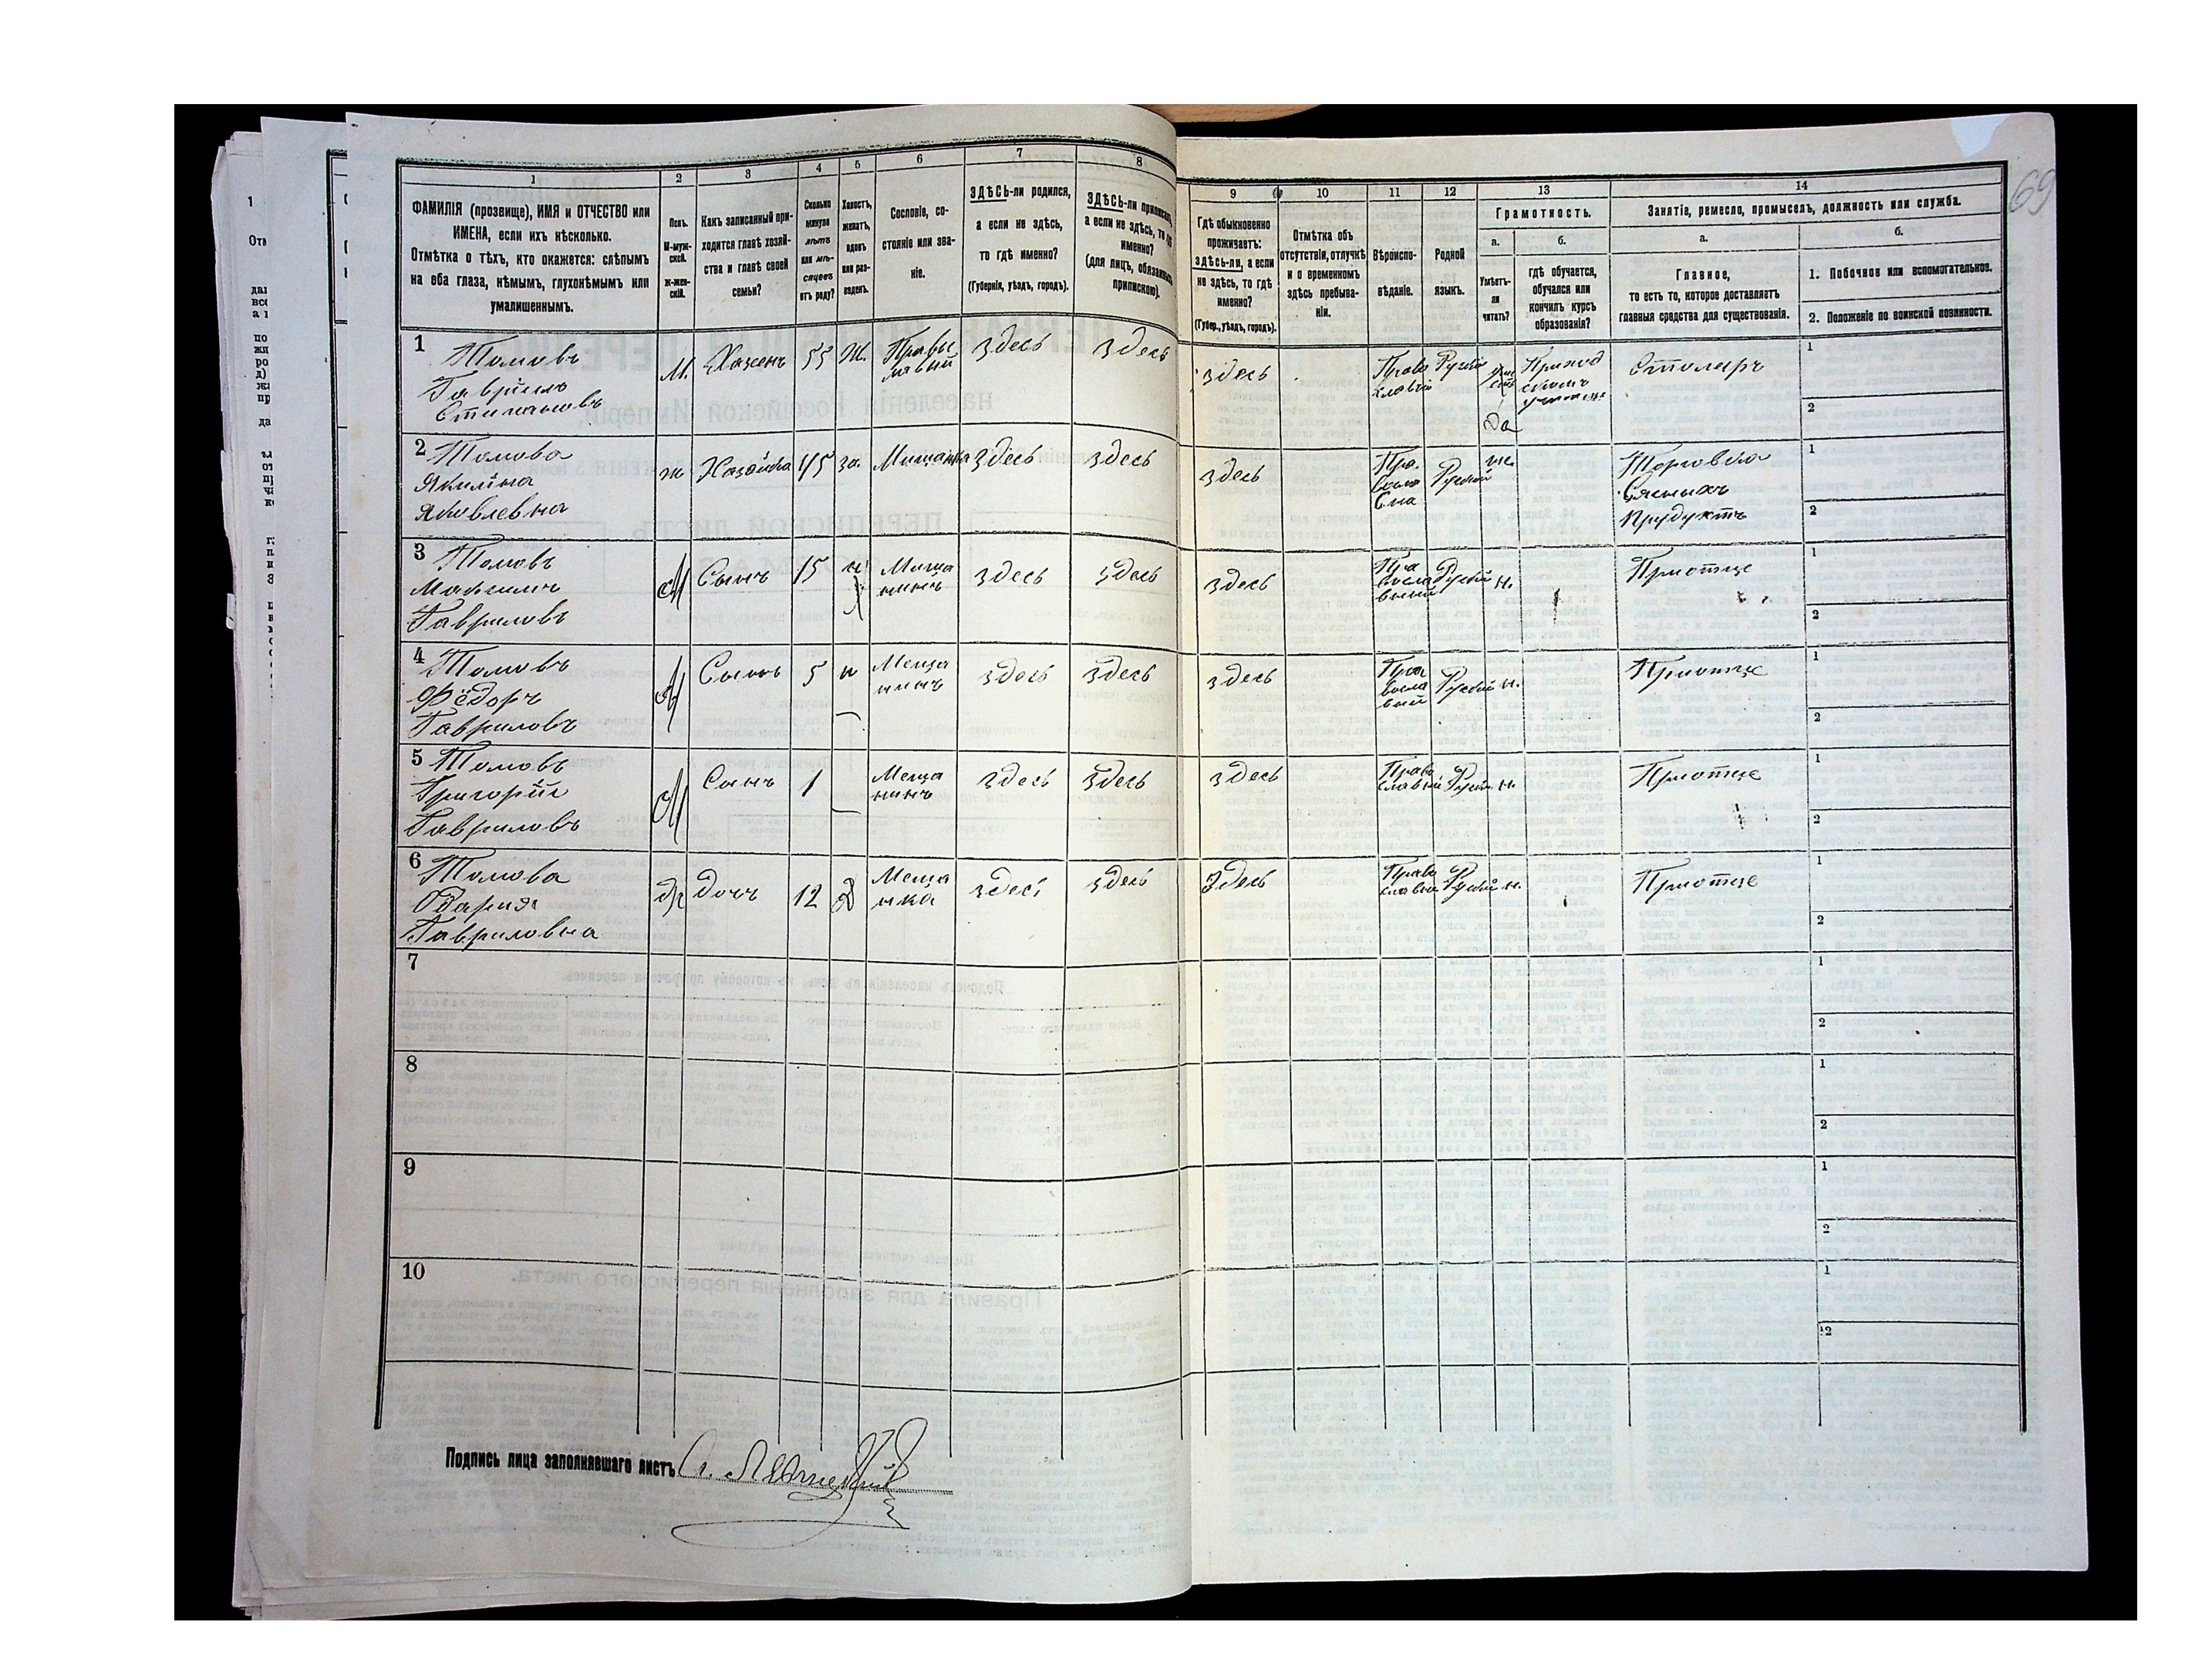 1
2
3
4
5
6
7
8
ФАМИЛІЯ (прозвище), ИМЯ и ОТЧЕСТВО или
ИМЕНА, если ихъ нѣсколько.
Отмѣтка о тѣхъ, кто окажется: слѣпымъ
на оба глаза, нѣмымъ, глухонѣмымъ или
умалишеннымъ.
Полъ.
М-муж-
ской.
ж-жен-
скій.
Какъ записанный при-
ходится главѣ хозяй-
ства и главѣ своей
семьи?
Сколько
минуло
лѣтъ
или мѣ-
сяцевъ
отъ роду?
Холостъ,
женатъ,
вдовъ
или раз-
веденъ.
Сословіе, со-
стояніе или зва-
ніе.
ЗДѢСЬ-ли родился,
а если не здѣсь,
то гдѣ именно?
(Губернія, уѣздъ, городъ).
ЗДѢСЬ-ли приписанъ,
а если не здѣсь, то гдѣ
именно?
(для лицъ, обязанныхъ
припискою).
9
10
11
12
13
14
69
Гдѣ обыкновенно
проживаетъ:
здѣсь-ли, а если
не здѣсь, то гдѣ
именно?
(Губер., уѣздъ, городъ).
Отмѣтка объ
отсутствіи, отлучкѣ
и о временномъ
здѣсь пребыва-
ніи.
Вѣроиспо-
вѣданіе.
Родной
языкъ.
Грамотность.
а.
б.
Умѣетъ-
ли
читать?
гдѣ обучается,
обучался или
кончилъ курсъ
образованія?
Занятіе, ремесло, промыселъ, должность или служба.
а.
б.
Главное,
то есть то, которое доставляетъ
главныя средства для существованія.
1. Побочное или вспомогательное.
2. Положеніе по воинской повинности.
1
Томовъ
Гаврiилъ
Стипановъ
М.
Хазенъ
55
Ж.
здесь
здесь
здесь
Право
славiй
Рускiй
да
Приход
Столяръ
1
2
2
Томова
Якилiна
Яковлевна
ж
Хазаика
45
за.
Мищанка
здесь
здесь
здесь
Рускiй
Торговка
Продуктъ
1
2
3
Томовъ
Максимъ
Гавриловъ
М
Сынъ
15
Мища
нинъ
здесь
здесь
здесь
Рускiй
н.
Приотце
1
2
4
Томовъ
Фёдоръ
Гавриловъ
М
Сынъ
5
Меща
нинъ
здесь
здесь
здесь
Рускiй
н.
Приотце
1
2
5
Томовъ
Григорiй
Гавриловъ
М
Сынъ
1
Меща
нинъ
здесь
здесь
здесь
Право
славный
Рускiй
н.
Приотце
1
2
6
Томова
Дария
Гавриловна
Дочъ
12
Д
Меща
нка
здесь
здесь
здесь
Право
славн
Рускiй
н.
Приотце
1
2
7
1
2
8
1
2
9
1
2
10
1
2
Подпись лица заполнявшаго листъ